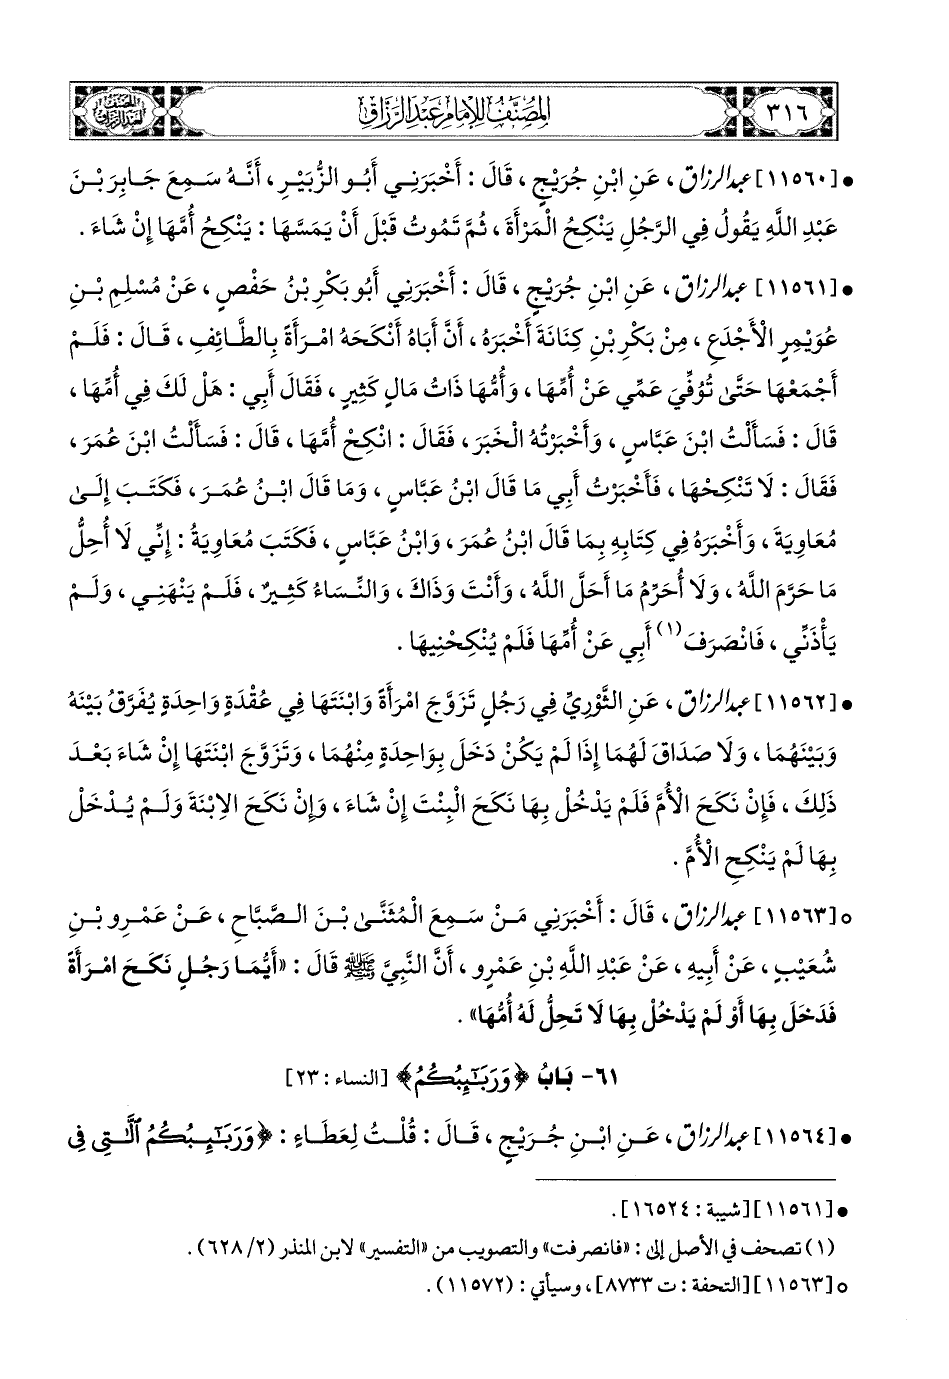 ٣١٦
المصنف للإمام عبد الرزاق
المصنف
لعبد الرزاق
• [١١٥٦٠] عبد الرزاق، عَنِ ابْنِ جُرَيْجٍ، قَالَ: أَخْبَرَنِي أَبُو الزُّبَيْرِ، أَنَّهُ سَمِعَ جَابِرَ بْنَ
عَبْدِ اللَّهِ يَقُولُ فِي الرَّجُلِ يَنْكِحُ الْمَرْأَةَ، ثُمَّ تَمُوتُ قَبْلَ أَنْ يَمَسَّهَا: يَنْكِحُ أُمَّهَا إِنْ شَاءَ.
• [١١٥٦١] عبد الرزاق، عَنِ ابْنِ جُرَيْجٍ، قَالَ: أَخْبَرَنِي أَبُو بَكْرِ بْنُ حَفْصٍ، عَنْ مُسْلِمِ بْنِ
عُوَيْمِرِ الْأَجْدَعِ، مِنْ بَكْرِ بْنِ كِنَانَةَ أَخْبَرَهُ، أَنَّ أَبَاهُ أَنْكَحَهُ امْرَأَةً بِالطَّائِفِ، قَالَ: فَلَمْ
أَجْمَعْهَا حَتَّى تُوُفِّيَ عَمِّي عَنْ أُمِّهَا، وَأُمُّهَا ذَاتُ مَالٍ كَثِيرٍ، فَقَالَ أَبِي: هَلْ لَكَ فِي أُمِّهَا،
قَالَ: فَسَأَلْتُ ابْنَ عَبَّاسٍ، وَأَخْبَرْتُهُ الْخَبَرَ، فَقَالَ: انْكِحْ أُمَّهَا، قَالَ: فَسَأَلْتُ ابْنَ عُمَرَ،
فَقَالَ: لَا تَنْكِحْهَا، فَأَخْبَرْتُ أَبِي مَا قَالَ ابْنُ عَبَّاسٍ، وَمَا قَالَ ابْنُ عُمَرَ، فَكَتَبَ إِلَى
مُعَاوِيَةَ، وَأَخْبَرَهُ فِي كِتَابِهِ بِمَا قَالَ ابْنُ عُمَرَ، وَابْنُ عَبَّاسٍ، فَكَتَبَ مُعَاوِيَةُ: إِنِّي لَا أُحِلُّ
مَا حَرَّمَ اللَّهُ، وَلَا أُحَرِّمُ مَا أَحَلَّ اللَّهُ، وَأَنْتَ وَذَاكَ، وَالنِّسَاءُ كَثِيرٌ، فَلَمْ يَنْهَنِي، وَلَمْ
يَأْذَنِّي، فَانْصَرَفَ(١) أَبِي عَنْ أُمِّهَا فَلَمْ يُنْكِحْنِيهَا.
• [١١٥٦٢] عبد الرزاق، عَنِ الثَّوْرِيِّ فِي رَجُلٍ تَزَوَّجَ امْرَأَةً وَابْنَتَهَا فِي عُقْدَةٍ وَاحِدَةٍ يُفَرَّقُ بَيْنَهُ
وَبَيْنَهُمَا، وَلَا صَدَاقَ لَهُمَا إِذَا لَمْ يَكُنْ دَخَلَ بِوَاحِدَةٍ مِنْهُمَا، وَتَزَوَّجَ ابْنَتَهَا إِنْ شَاءَ بَعْدَ
ذَلِكَ، فَإِنْ نَكَحَ الْأُمَّ فَلَمْ يَدْخُلْ بِهَا نَكَحَ الْبِنْتَ إِنْ شَاءَ، وَإِنْ نَكَحَ الِابْنَةَ وَلَمْ يُدْخَلْ
بِهَا لَمْ يَنْكِحِ الْأُمَّ.
○ [١١٥٦٣] عبد الرزاق، قَالَ: أَخْبَرَنِي مَنْ سَمِعَ الْمُثَنَّى بْنَ الصَّبَّاحِ، عَنْ عَمْرِو بْنِ
شُعَيْبٍ، عَنْ أَبِيهِ، عَنْ عَبْدِ اللَّهِ بْنِ عَمْرٍو، أَنَّ النَّبِيَّ ﷺ قَالَ: «أَيُّمَا رَجُلٍ نَكَحَ امْرَأَةً
فَدَخَلَ بِهَا أَوْ لَمْ يَدْخُلْ بِهَا لَا تَحِلُّ لَهُ أُمُّهَا».
٦١- بَابُ ﴿وَرَبَٰٓئِبُكُمُ﴾ [النساء: ٢٣]
• [١١٥٦٤] عبد الرزاق، عَنِ ابْنِ جُرَيْجٍ، قَالَ: قُلْتُ لِعَطَاءٍ: ﴿وَرَبَٰٓئِبُكُمُ ٱلَّٰتِى فِى
• [١١٥٦١] [شيبة: ١٦٥٢٤].
(١) تصحف في الأصل إلى: «فانصرفت» والتصويب من «التفسير» لابن المنذر (٢/ ٦٢٨).
○ [١١٥٦٣] [التحفة: ت ٨٧٣٣]، وسيأتي: (١١٥٧٢).